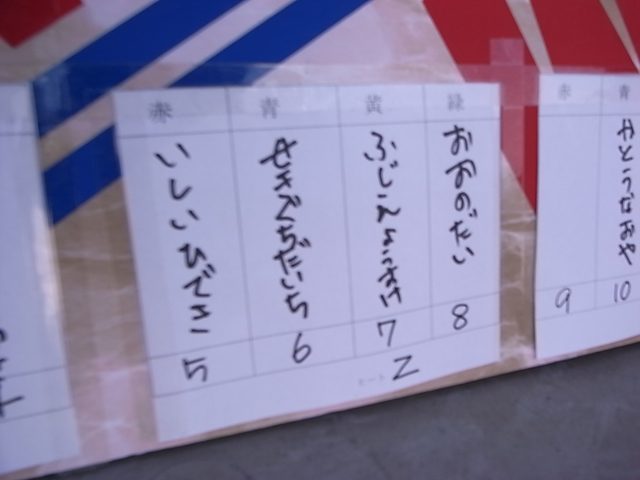 赤 青 黄 緑
いしいひでき
せきぐちだいち
ふじえようすけ
おおのだい
5 6 7 8
ヒート 2
赤 青
かとうなおや
9 10